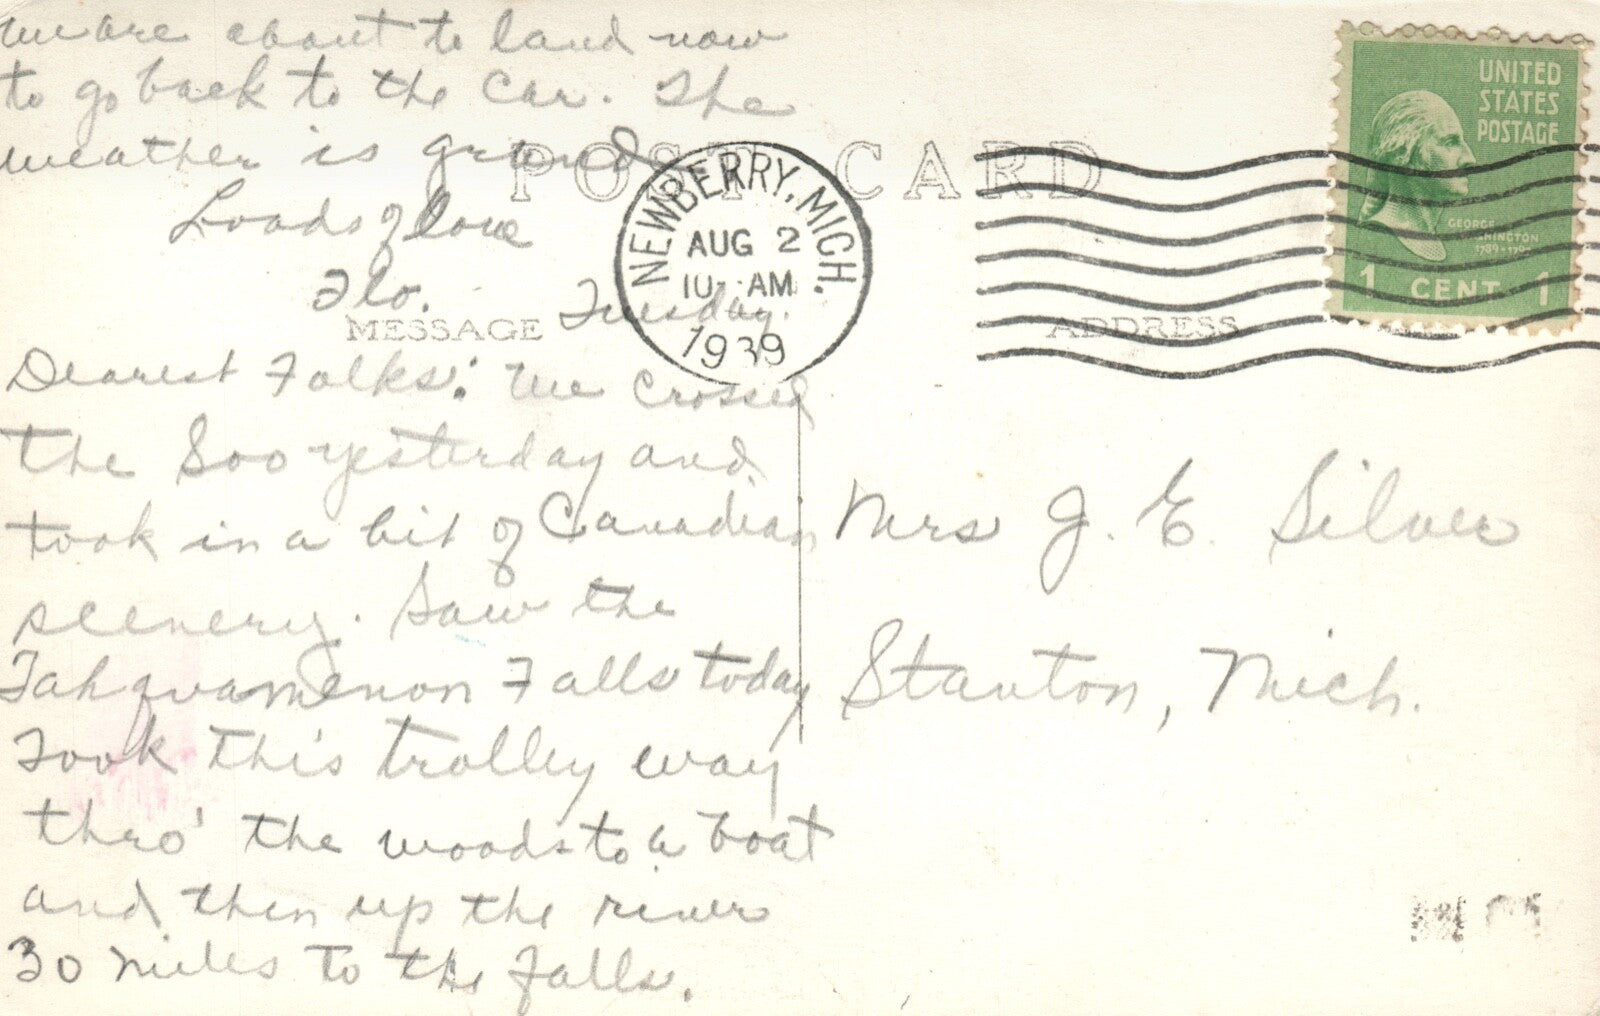 we are about to land now
to go back to the car. The
weather is grand
Loads of love
Flo.
POST CARD
NEWBERRY, MICH.
AUG 2
10 AM
1939
UNITED
STATES
POSTAGE
GEORGE
WASHINGTON
1789-1797
1 CENT 1
MESSAGE
ADDRESS
Tuesday.
Dearest Folks: We crossed
the Soo yesterday and
took in a bit of Canadian
scenery. Saw the
Tahquamenon Falls today
Took this trolley way
thro' the woods to a boat
and then up the river
30 miles to the falls.
Mrs J. E. Silver
Stanton, Mich.